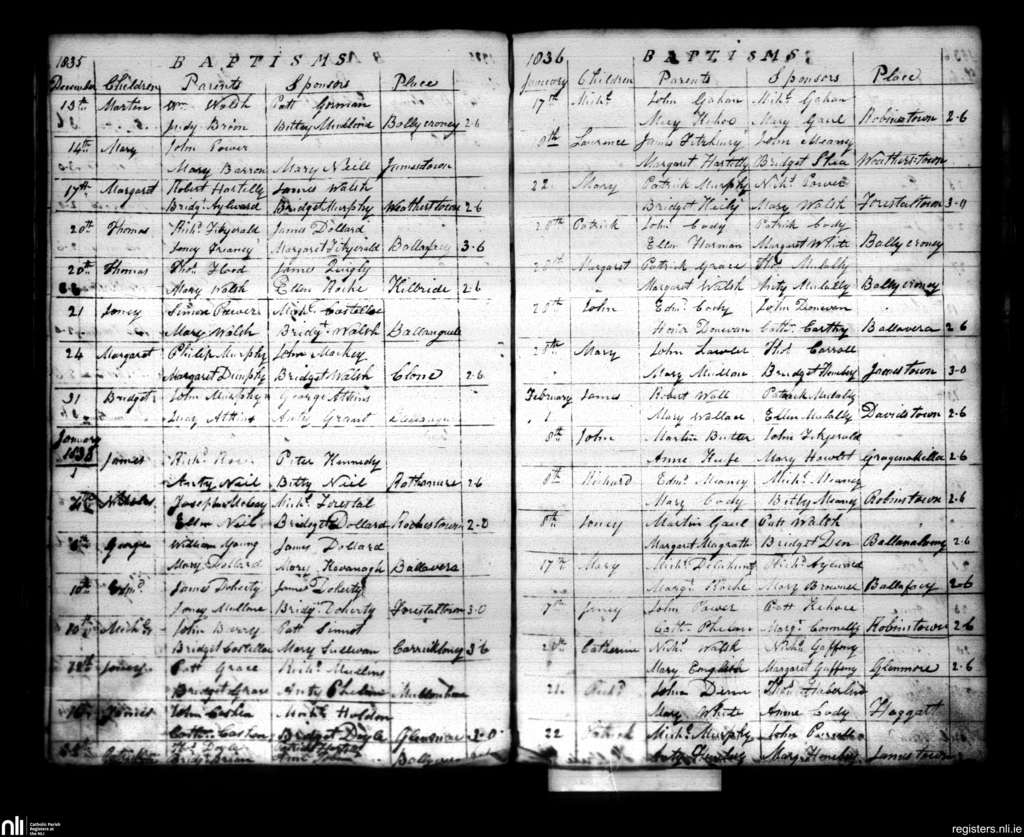 1835 BAPTISMS
December Children Parents Sponsors Place
13th Martin Wm Walsh Patt Gorman
Judy Brien Ballycroney 2-6
14th Mary John Power
Mary Barron Mary Neill Jamestown
17th Margaret Robert Hartelly James Walsh
Bridgt. Aylward Bridget Murphy Weatherstown 2 6
20th Thomas Richd. Fitzgerald James Dollard
Joney Margaret Fitzgerald Ballafacy 3-6
20th Thomas Thos. Flood James Quigly
Mary Walsh Ellen Roche Kilbride 2 6
21 Joney Simon Power Michl. Costelloe
Mary Walsh Bridgt. Walsh
24 Margaret Philip Murphy John Mackey
Margaret Dunphy Bridget Walsh Clone 2-6
31 Bridget John Murphy George Atkins
Atkins Anty Grant
January
1836 James Richd. Peter Kennedy
1 Anty Neil Bitty Neil 2 6
Nicholas Joseph Michl. Forestal
Ellen Neil Bridget Dollard Rochestown 2-0
George William Young James Dollard
Mary Dollard Mary Kavanagh Ballavera
10th Edmd. James Doherty James Doherty
Joney Mullone Bridgt. Doherty Forestaltown 3-0
Michl. John Barry Patt Sinnot
Bridget Costelloe Mary Sullivan Carrickloney 3 6
Patt Grace Michl. Mullins
Bridget Grace Anty Phelan
James John Cashen Michl. Holden
Cathn. Cashen Bridget Doyle Glenmore 2-0
Thos. Doyle
Bridgt. Brien
1836 BAPTISMS
January Children Parents Sponsors Place
17th Michl. John Gahan Michl. Gahan
Mary Kehoe Mary Gaul Robinstown 2-6
Laurence James Fitzhenry John Meany
Margaret Hartelly Bridget Shea Weatherstown
22 Mary Patrick Murphy Nichs. Power
Bridget Mary Walsh Forestaltown 3-0
Patrick John Cody Patrick Cody
Ellen Harman Margaret White Ballycroney
Margaret Patrick Grace Thos. Mulally
Margaret Walsh Anty Mulally Ballycroney
John Edmd. Cody John Donovan
Honor Donovan Cathn. Carthy Ballavera 2 6
Mary John Lawler Thos. Carroll
Mary Mullan Bridget Jamestown 3-0
February James Robert Wall Patrick Mulally
1 Mary Wallace Ellen Mulally Davidstown 2-6
8th John Martin Butler John Fitzgerald
Anne Keefe Mary Howlet 2-6
8th Richard Edmd. Meaney Michl. Meaney
Mary Cody Bitty Meaney Robinstown 2-6
Joney Martin Gaul Patt Walsh
Margaret Magrath Bridget Den 2-6
17th Mary Michl. Delahunt Richd. Aylward
Margt. Roche Mary Browner Ballafacy 2-6
7th Joney John Power Patt Kehoe
Cathn. Phelan Margt. Connelly Robinstown 2 6
Catherine Nichs. Walsh Nichs. Gaffney
Mary English Margaret Gaffney Glenmore 2-6
21 Richd. John Dunn
Mary White Anne Cody Haggatt
22 Patrick Michl. Murphy John Purcell
Anty Margt. Jamestown
nli Catholic Parish Registers at the NLI
registers.nli.ie